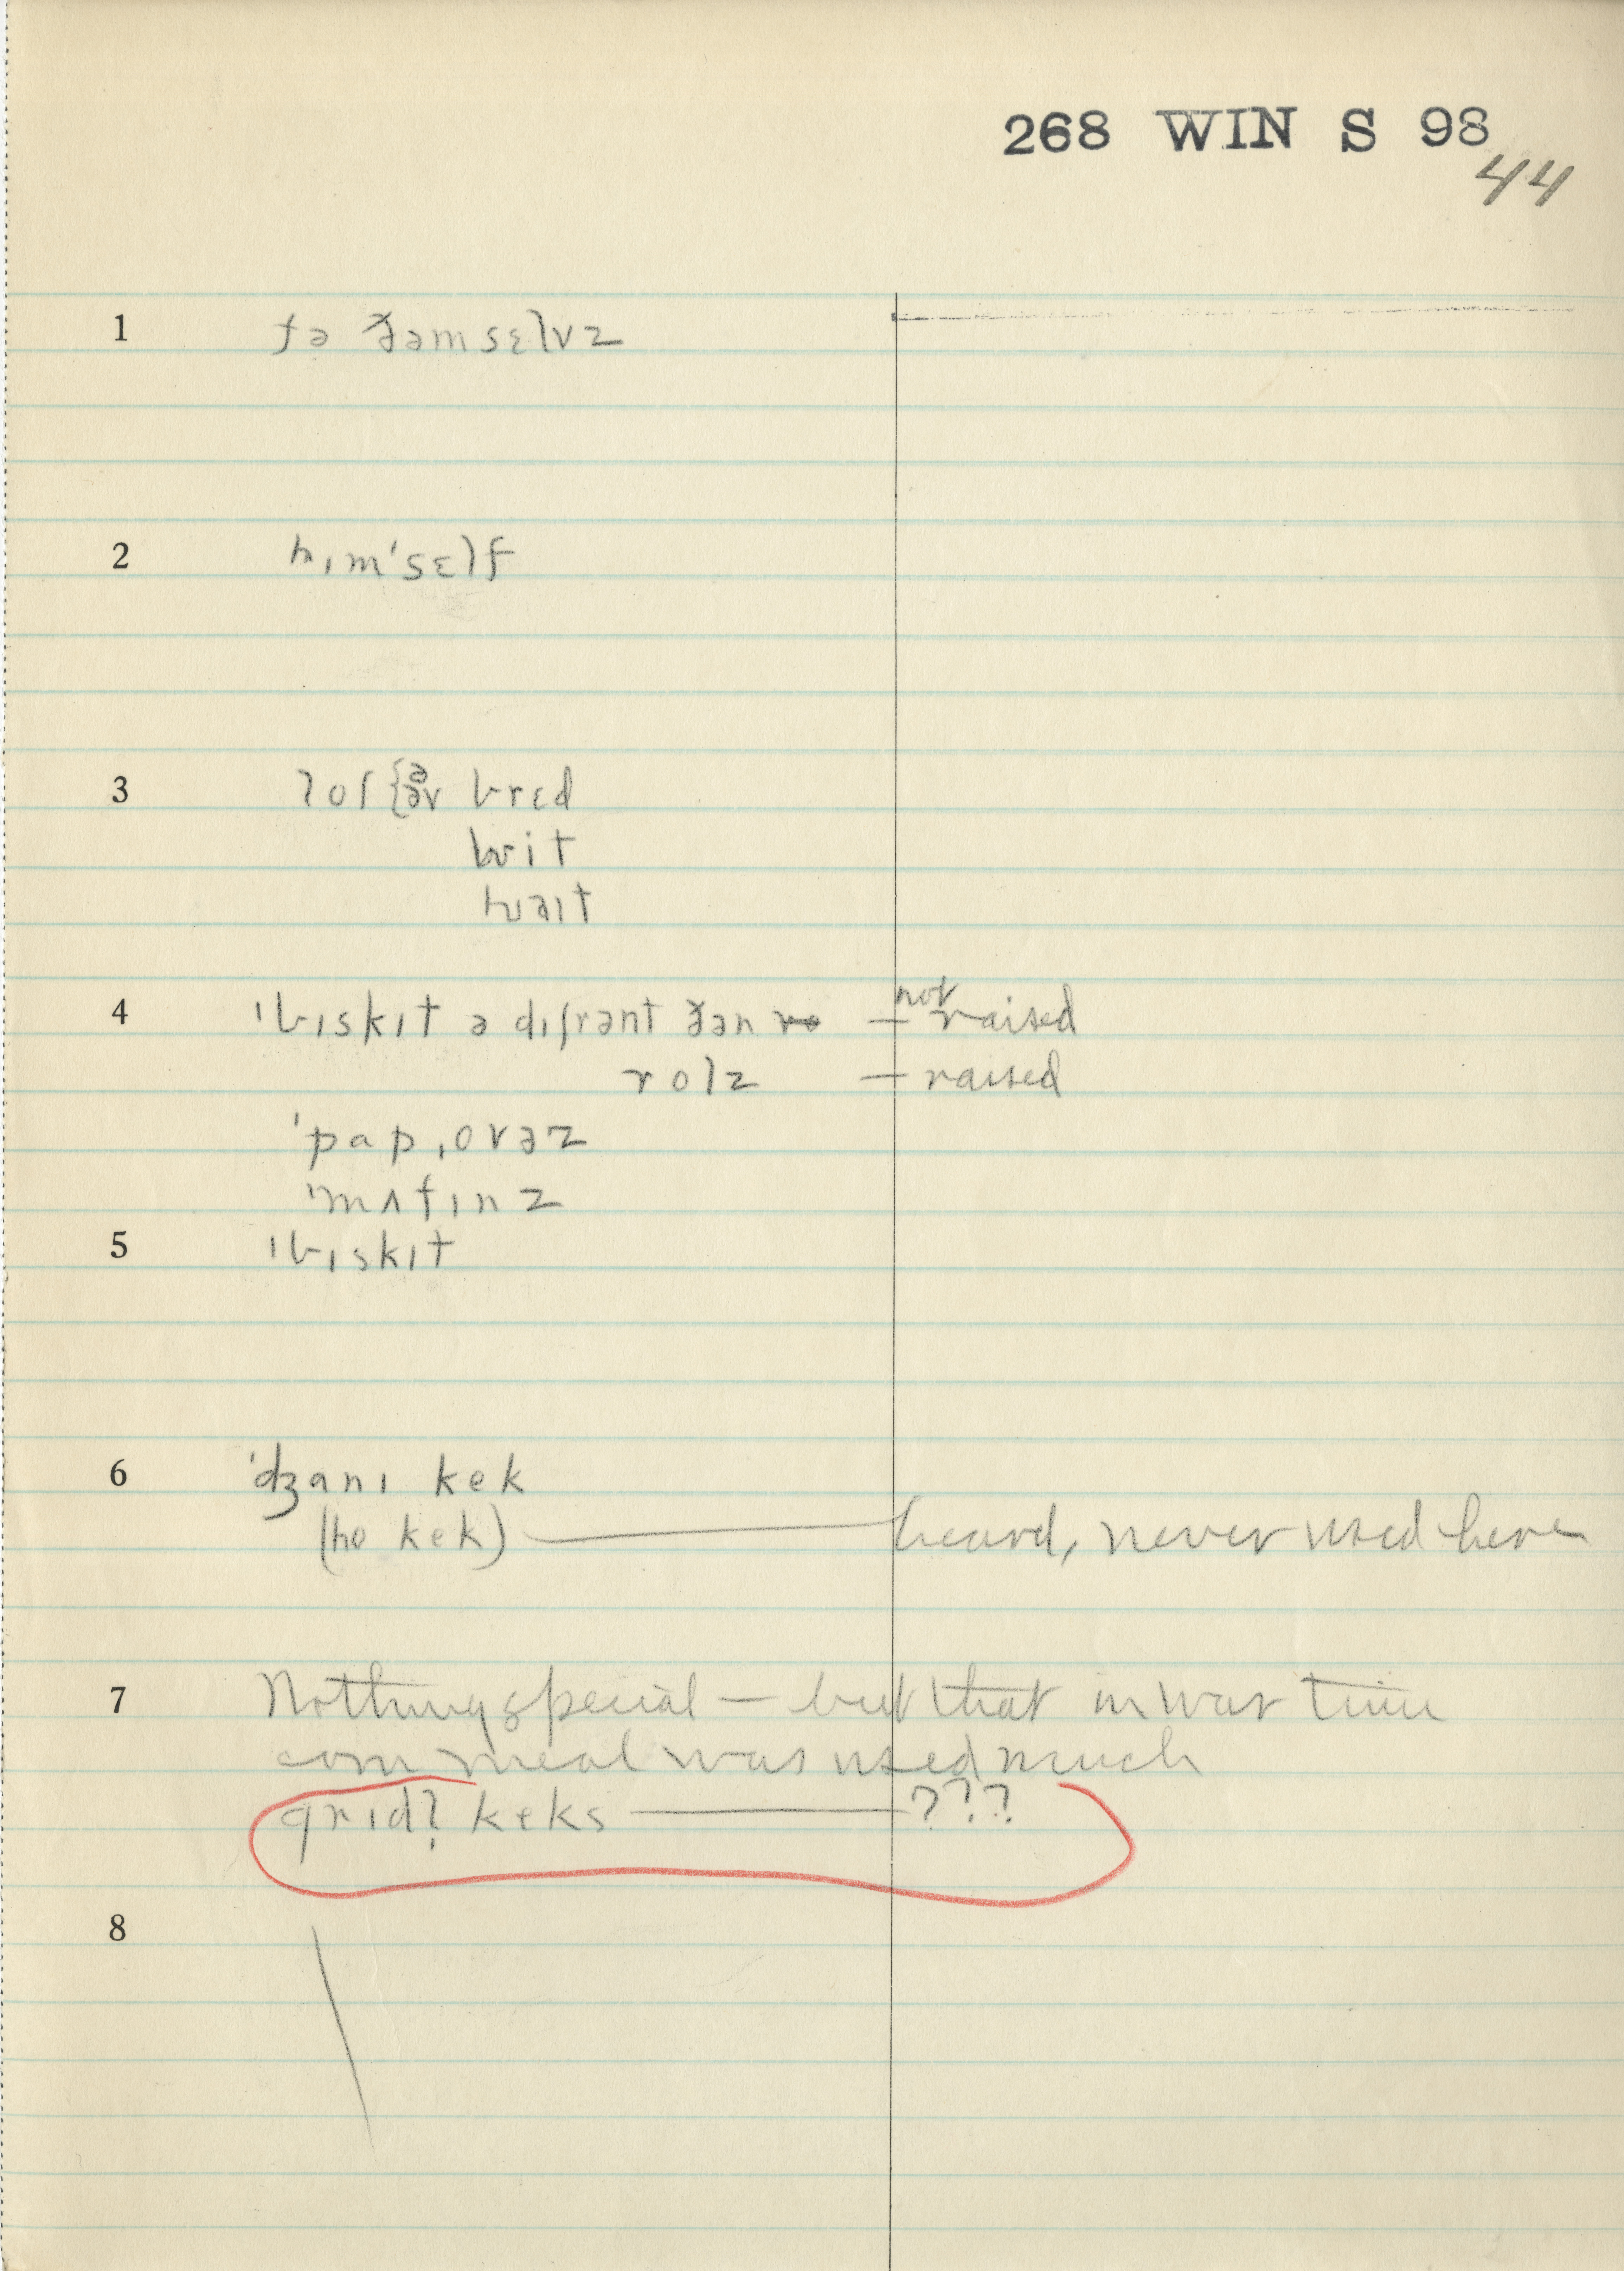 268 WIN S 98
44
1 fə ðəmsɛlvz
2 hɪm'sɛlf
3 lof {ə əv brɛd
wit
hwaɪt
4 'bɪskɪt ə dɪfrənt ðən — not raised
rolz — raised
'pap,ovəz
'mʌfɪnz
5 'bɪskɪt
6 'dʒanɪ kek
(ho kek) — heard, never used here
7 Nothing special — but that in war time
corn meal was used much
grɪdl̩ keks — ???
8